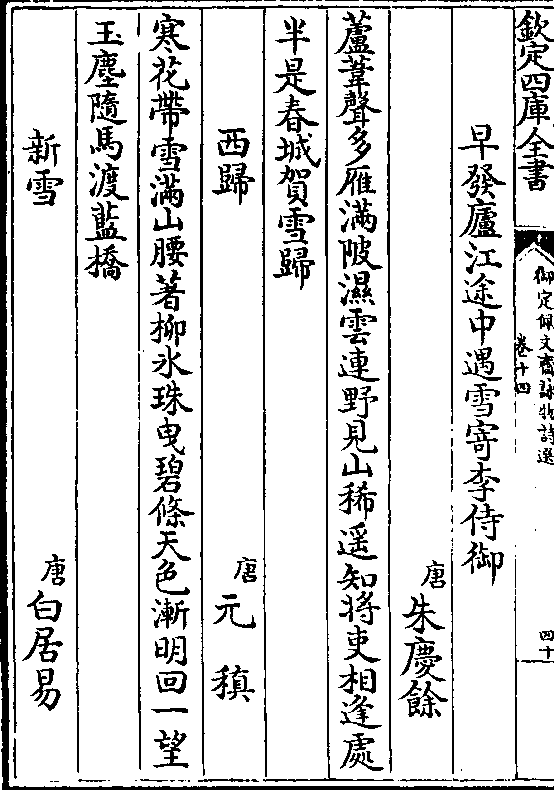 欽定四庫全書
御定佩文齋詠物詩選
卷十四
四十
早發廬江途中遇雪寄李侍御
唐 朱慶餘
蘆葦聲多雁滿陂濕雲連野見山稀遥知將吏相逢處
半是春城賀雪歸
西歸
唐 元稹
寒花帶雪滿山腰著柳氷珠曳碧條天色漸明回一望
玉塵隨馬渡藍橋
新雪
唐 白居易